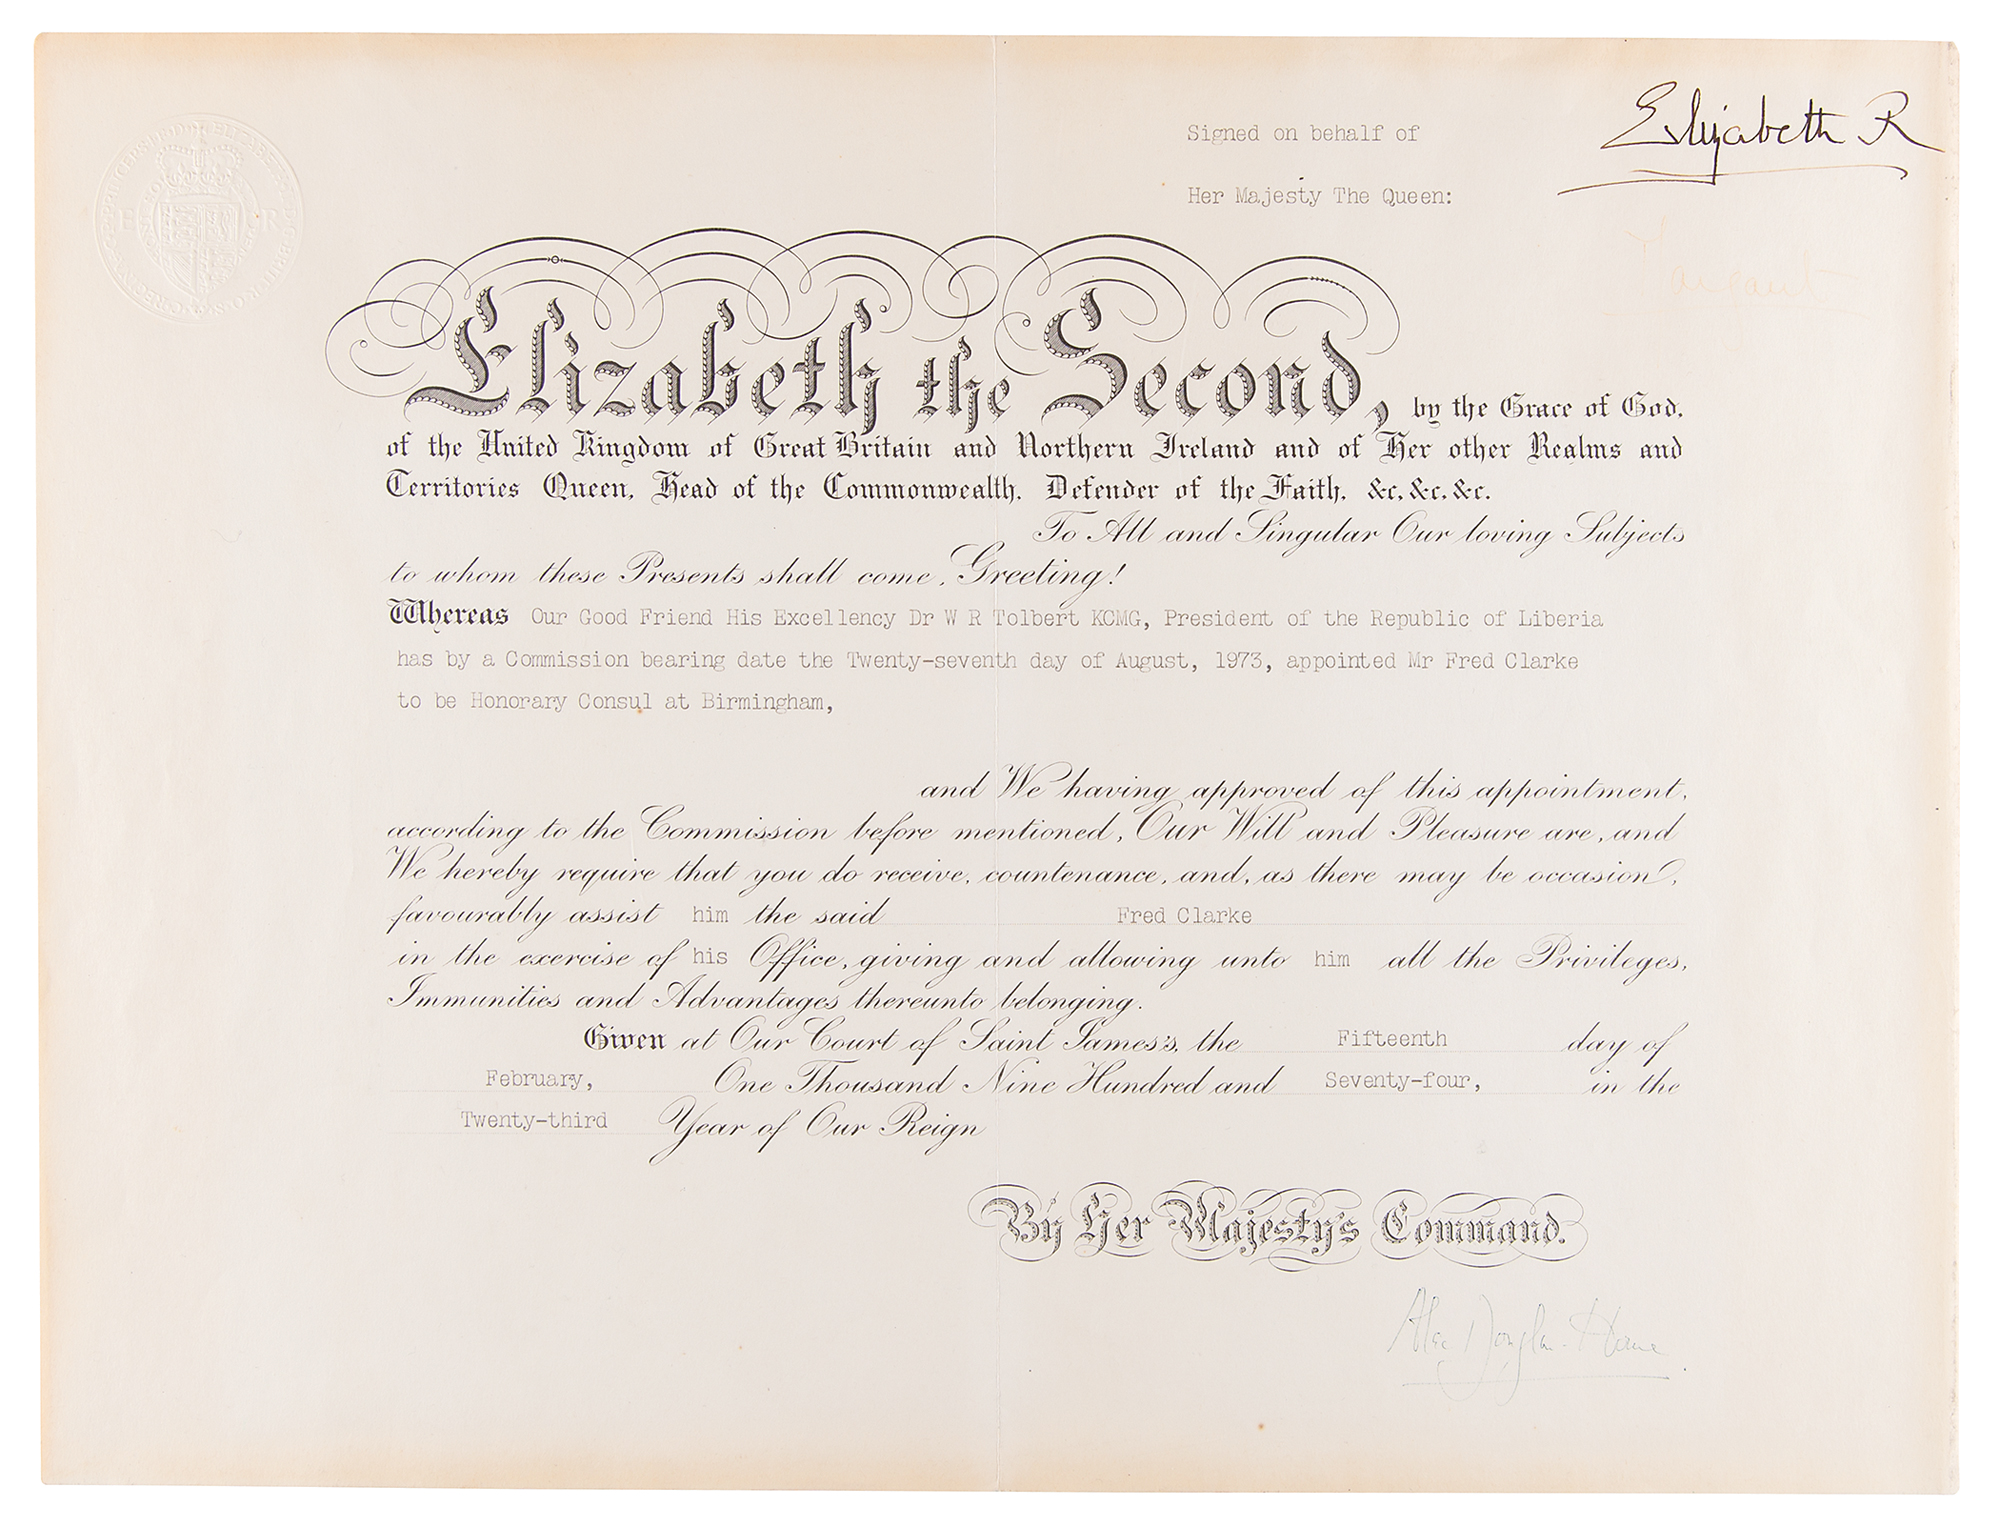 Elizabeth R
Signed on behalf of
Her Majesty The Queen:
Margaret
E R
Elizabeth the Second, by the Grace of God,
of the United Kingdom of Great Britain and Northern Ireland and of Her other Realms and
Territories Queen, Head of the Commonwealth, Defender of the Faith, &c, &c, &c.
To All and Singular Our loving Subjects
to whom these Presents shall come, Greeting!
Whereas Our Good Friend His Excellency Dr W R Tolbert KCMG, President of the Republic of Liberia
has by a Commission bearing date the Twenty-seventh day of August, 1973, appointed Mr Fred Clarke
to be Honorary Consul at Birmingham,
and We having approved of this appointment,
according to the Commission before mentioned, Our Will and Pleasure are, and
We hereby require that you do receive, countenance, and, as there may be occasion,
favourably assist him the said Fred Clarke
in the exercise of his Office, giving and allowing unto him all the Privileges,
Immunities and Advantages thereunto belonging.
Given at Our Court of Saint James's, the Fifteenth day of
February, One Thousand Nine Hundred and Seventy-four, in the
Twenty-third Year of Our Reign
By Her Majesty's Command.
Alec Douglas-Home